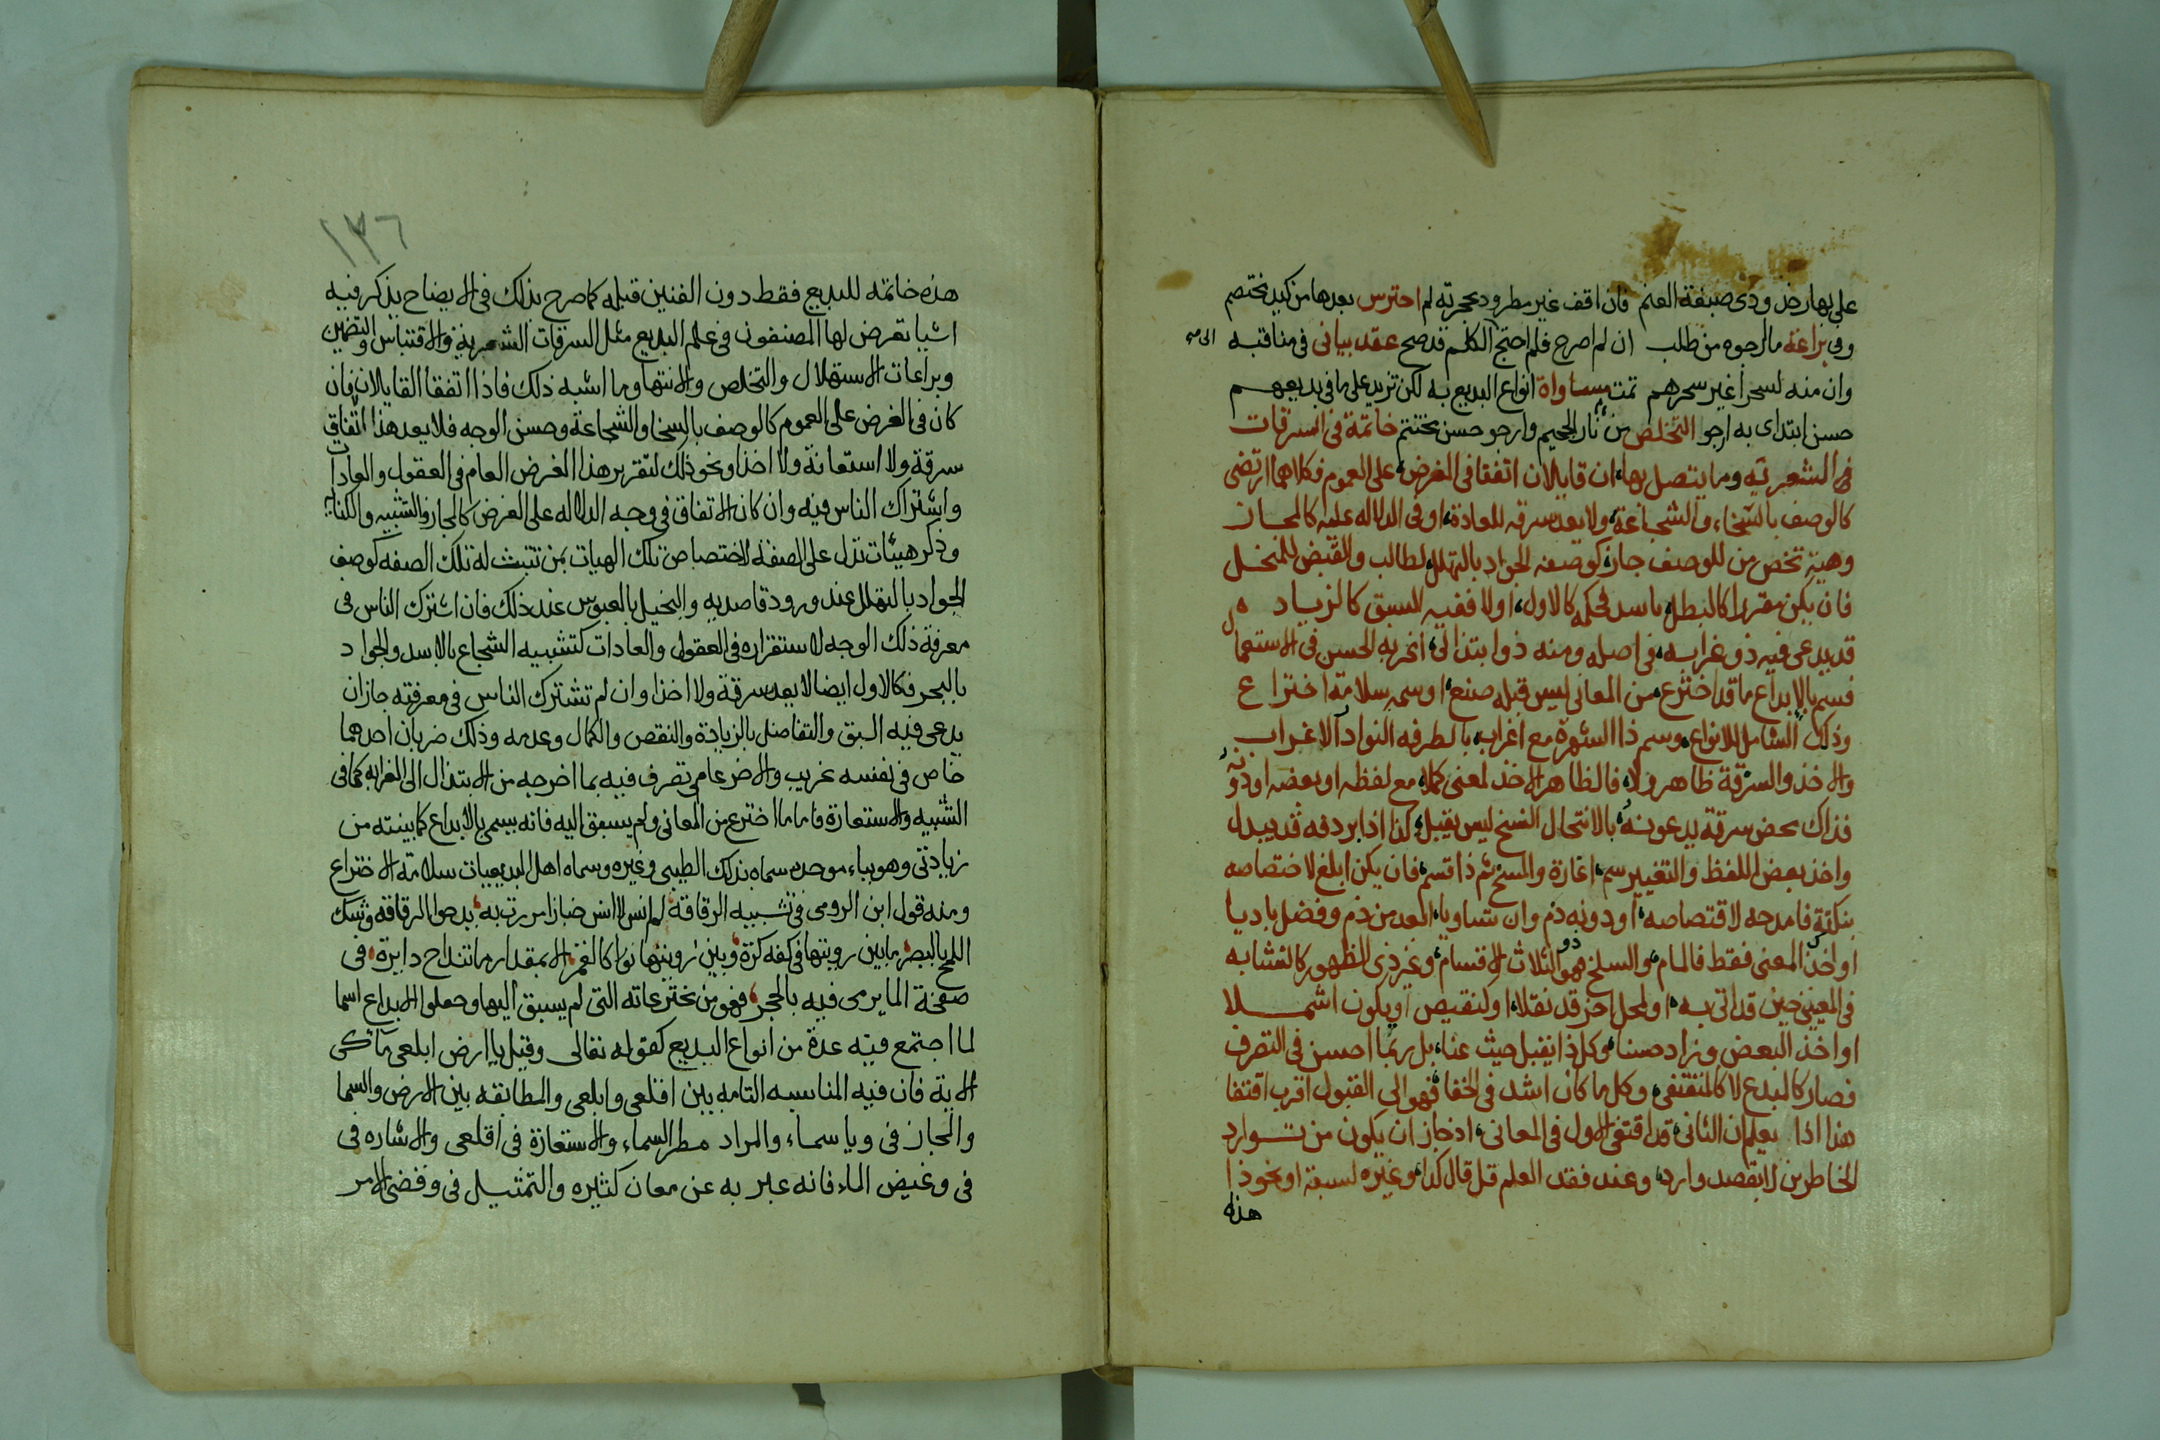 على بها رض ودى صبغة العنم فان اقف غير مطرود بحجرته لم احترس بعدها من كيد مختصم
وفى براعة ما ارجوه من طلب ان لم اصرح فلم احتج الى الكلم قد صح عقد بيانى فى مناقبه
وان منه لسحرا غير سحرهم تمت مساواة انواع البديع به لكن تزيد على ما فى بديعهم
حسن ابتداى به ارجو التخلص من نار الجحيم وارجو حسن مختتم خاتمة فى السرقات
فى الشعرية وما يتصل بها ان قايلان اتفقا فى الغرض على العموم فكلاهما ارتضى
كالوصف بالسخاء والشجاعة ولا يعد سرقه للعادة او فى الدلاله عليه كالمجاز
وهيئة تخص من للوصف جاز كوصف الجواد بالتهلل لطالب والقبض للمبخل
فان يكن مقررا كالبطل باسد فحكمه كالاول اولا ففيه السبق كالزياده
قد يدعى فيه ذو غرابه فى اصله ومنه ذو ابتذال اغربه الحسن فى الاستعمال
فسم بالابداع ما قد اخترع من المعانى ليس قبله صنع او سمه سلامة اختراع
وذلك الشامل للانواع وسم ذا الشهرة مع اغراب بالطرفه النوادر الاغراب
والاخذ والسرقة ظاهر ولا فالظاهر الاخذ لمعنى كملا مع لفظه او بعضه او دونه
فذاك محض سرقة يدعونه بالانتحال النسخ ليس يقبل كذا اذا بردفه قد يبدل
واخذ بعض اللفظ والتغيير سم اغارة والمسخ ثم ذا قسم فان يكن ابلغ لاختصاصه
بنكتة فامدحه لاقتصاصه او دونه ذم وان تساويا فابعد من ذم وفضل باديا
او اخذ المعنى فقط فالمام والسلخ ذو الثلاث الاقسام وغير ذى الظهور كالتشابه
فى المعنيين حين قد اتى به او لمحل اخر قد نقلا او لنقيض او يكون اشملا
او اخذ البعض وزاد حسنا وكل ذا يقبل حيث عنا بل ربما احسن فى التصرف
فصار كالبدع لا كالمقتفى وكل ما كان اشد فى الخفا فهو الى القبول اقرب اقتفا
هذا اذا يعلم ان الثانى قد اقتفى الاول فى المعانى اذ جاز ان يكون من توارد
الخاطرين لا بقصد وارد وعند فقد العلم قل قال كذا وغيره لسبقه او نحو ذا
هذه
١٣٦
هذه خاتمه للبديع فقط دون الفنين قبله كما صرح بذلك فى الايضاح يذكر فيه
اشيا تعرض لها المصنفون فى علم البديع مثل السرقات الشعرية والاقتباس والتضمين
وبراعات الاستهلال والتخلص والانتها وما اشبه ذلك فاذا اتفقا القايلان فان
كان فى الغرض على العموم كالوصف بالسخا والشجاعة وحسن الوجه فلا يعد هذا اتفاق
سرقة ولا استعانة ولا اخذا ونحو ذلك لتقرير هذا الغرض العام فى العقول والعادات
واشتراك الناس فيه وان كان الاتفاق فى وجه الدلاله على الغرض كالمجاز والتشبيه والكناية
وذكر هيئات تدل على الصفة لاختصاص تلك الهيات بمن تثبت له تلك الصفه كوصف
الجواد بالتهلل عند ورود قاصديه والبخيل بالعبوس عند ذلك فان اشترك الناس فى
معرفة ذلك الوجه لاستقراره فى العقول والعادات كتشبيه الشجاع بالاسد والجواد
بالبحر فكالاول ايضا لا يعد سرقة ولا اخذا وان لم تشترك الناس فى معرفته جاز ان
يدعى فيه السبق والتفاضل بالزيادة والنقص والكمال وعدمه وذلك ضربان احدهما
خاص فى نفسه غريب والاخر عامى تصرف فيه بما اخرجه من الابتذال الى الغرابه كما فى
التشبيه والاستعارة فاما ما اخترع من المعانى ولم يسبق اليه فانه يسمى بالابداع كما بينته من
زيادتى وهو بباء موحده سماه بذلك الطيبى وغيره وسماه اهل البديعيات سلامة الاختراع
ومنه قول ابن الرومى فى تشبيه الرقاقة لم انس لا انس خبازا مررت به يدحوا الرقاقه وشك
اللمح بالبصر ما بين رويتها فى كفه كرة وبين رويتها نورا كالقمر الا بمقدار ما تنداح دايرة فى
صفحة الما يرمى فيه بالحجر فهو من مخترعاته التى لم يسبق اليها وجعلوا الابداع اسما
لما اجتمع فيه عدة من انواع البديع كقوله تعالى وقيل يا ارض ابلعى ماءكى
الاية فان فيه المناسبه التامه بين اقلعى وابلعى والمطابقه بين الارض والسما
والمجاز فى ويا سماء والمراد مطر السماء والاستعارة فى اقلعى والاشاره فى
فى وغيض الماء فانه عبر به عن معان كثيره والتمثيل فى وقضى الامر